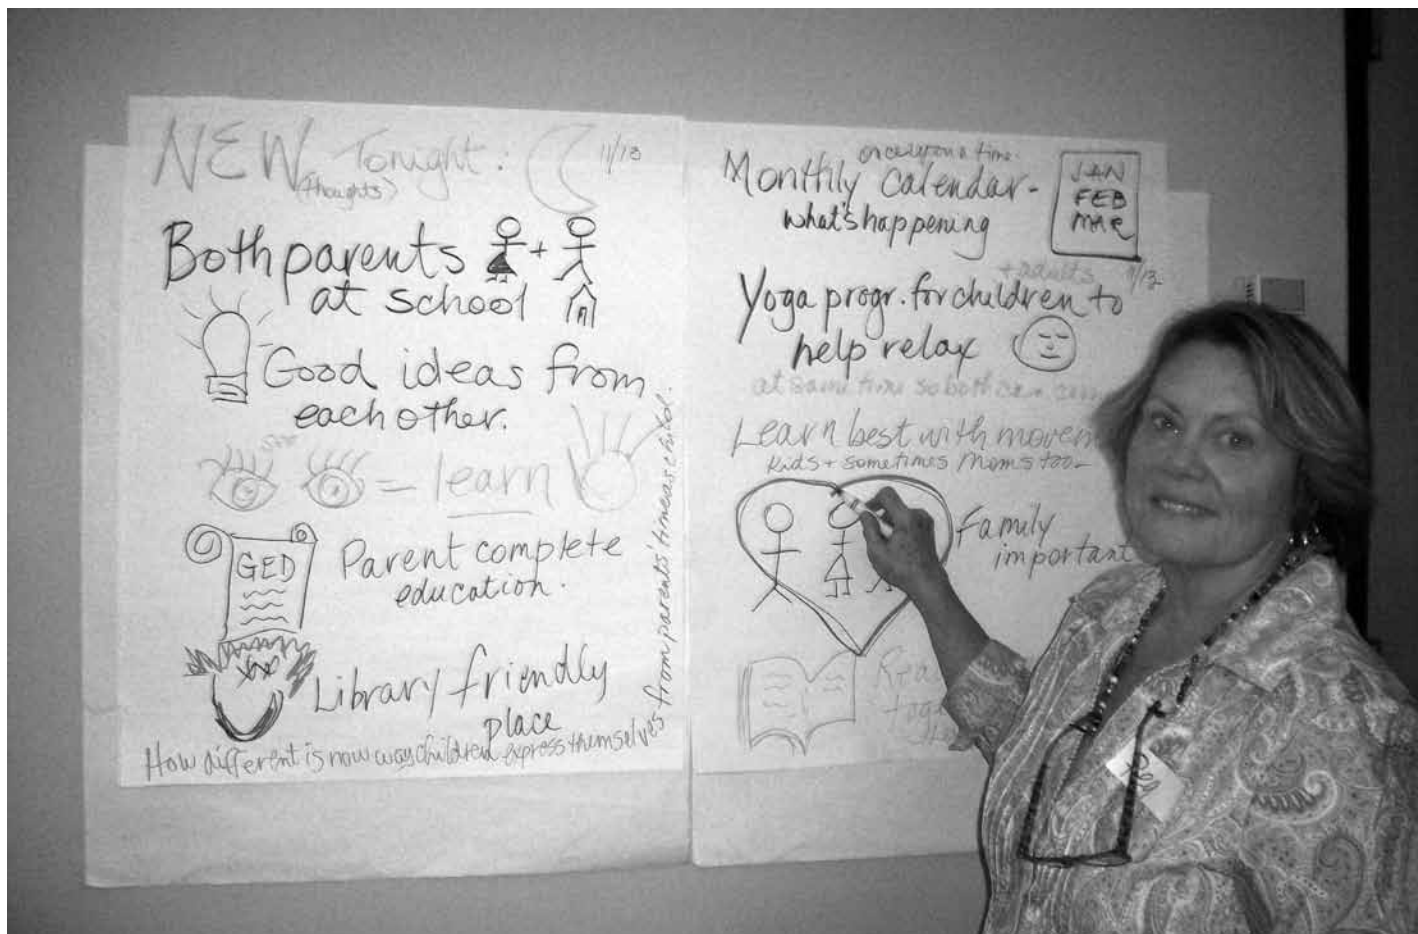 NEW Tonight: 11/13
(Thoughts)
Both parents +
at school
Good ideas from
each other.
see
= learn
GED
Parent complete
education.
Library friendly
place
How different is now way children express themselves from parents' time as child.
once upon a time.
Monthly calendar-
what's happening
JAN
FEB
MAR
+ adults 11/13
Yoga progr. for children to
help relax
at same time so both can
Learn best with
Kids + sometimes Moms too
Family
important